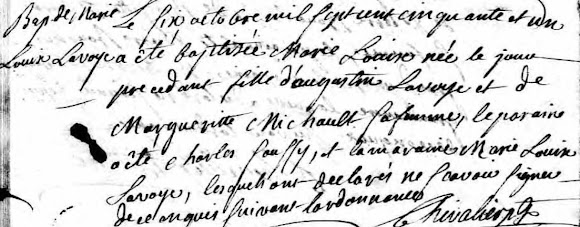 Bap. de Marie Le six octobre mil sept cent cinquante et un
Louise Lavoye a été baptisée Marie Louise née le jour
precedant fille d'augustin Lavoye et de
Margueritte Michault sa femme, le paraine
a été Charles , et la maraine Marie Louise
Lavoye, lesquels ont declarés ne scavoir signer
de ce enquis suivant l'ordonnance
Chevalier